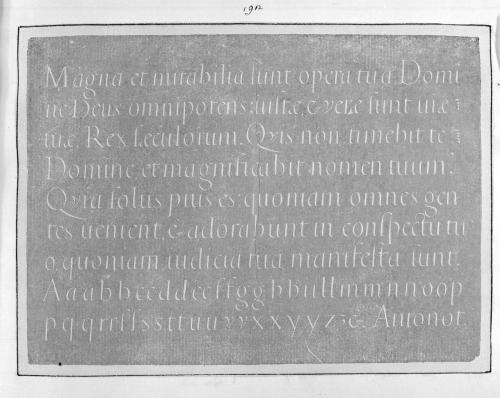 192
Magna et mirabilia sunt opera tua Domi
ne Deus omnipotens: iustæ, & veræ sunt uiæ
tuæ, Rex sæculorum. Qvis non timebit te
Domine, et magnificabit nomen tuum?
Qvia solus pius es: quoniam omnes gen
tes uenient, & adorabunt in conspectu tu
o, quoniam iudicia tua manifesta sunt.
A a a b b c c d d e e f f g g h h i i l l m m n n o o p
p q q r r s s s s t t u u v v x x y y z z &. Au